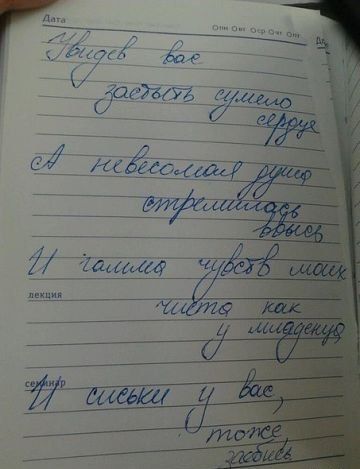 Дата
Опн Овт Оср Очт Опт
Увидев вас
застыть сумело
сердце
А невесомая душа
стремилась
ввысь
И гамма чувств моих
лекция
чиста как
у младенца,
семинар
И сиськи у вас,
тоже,
заебись